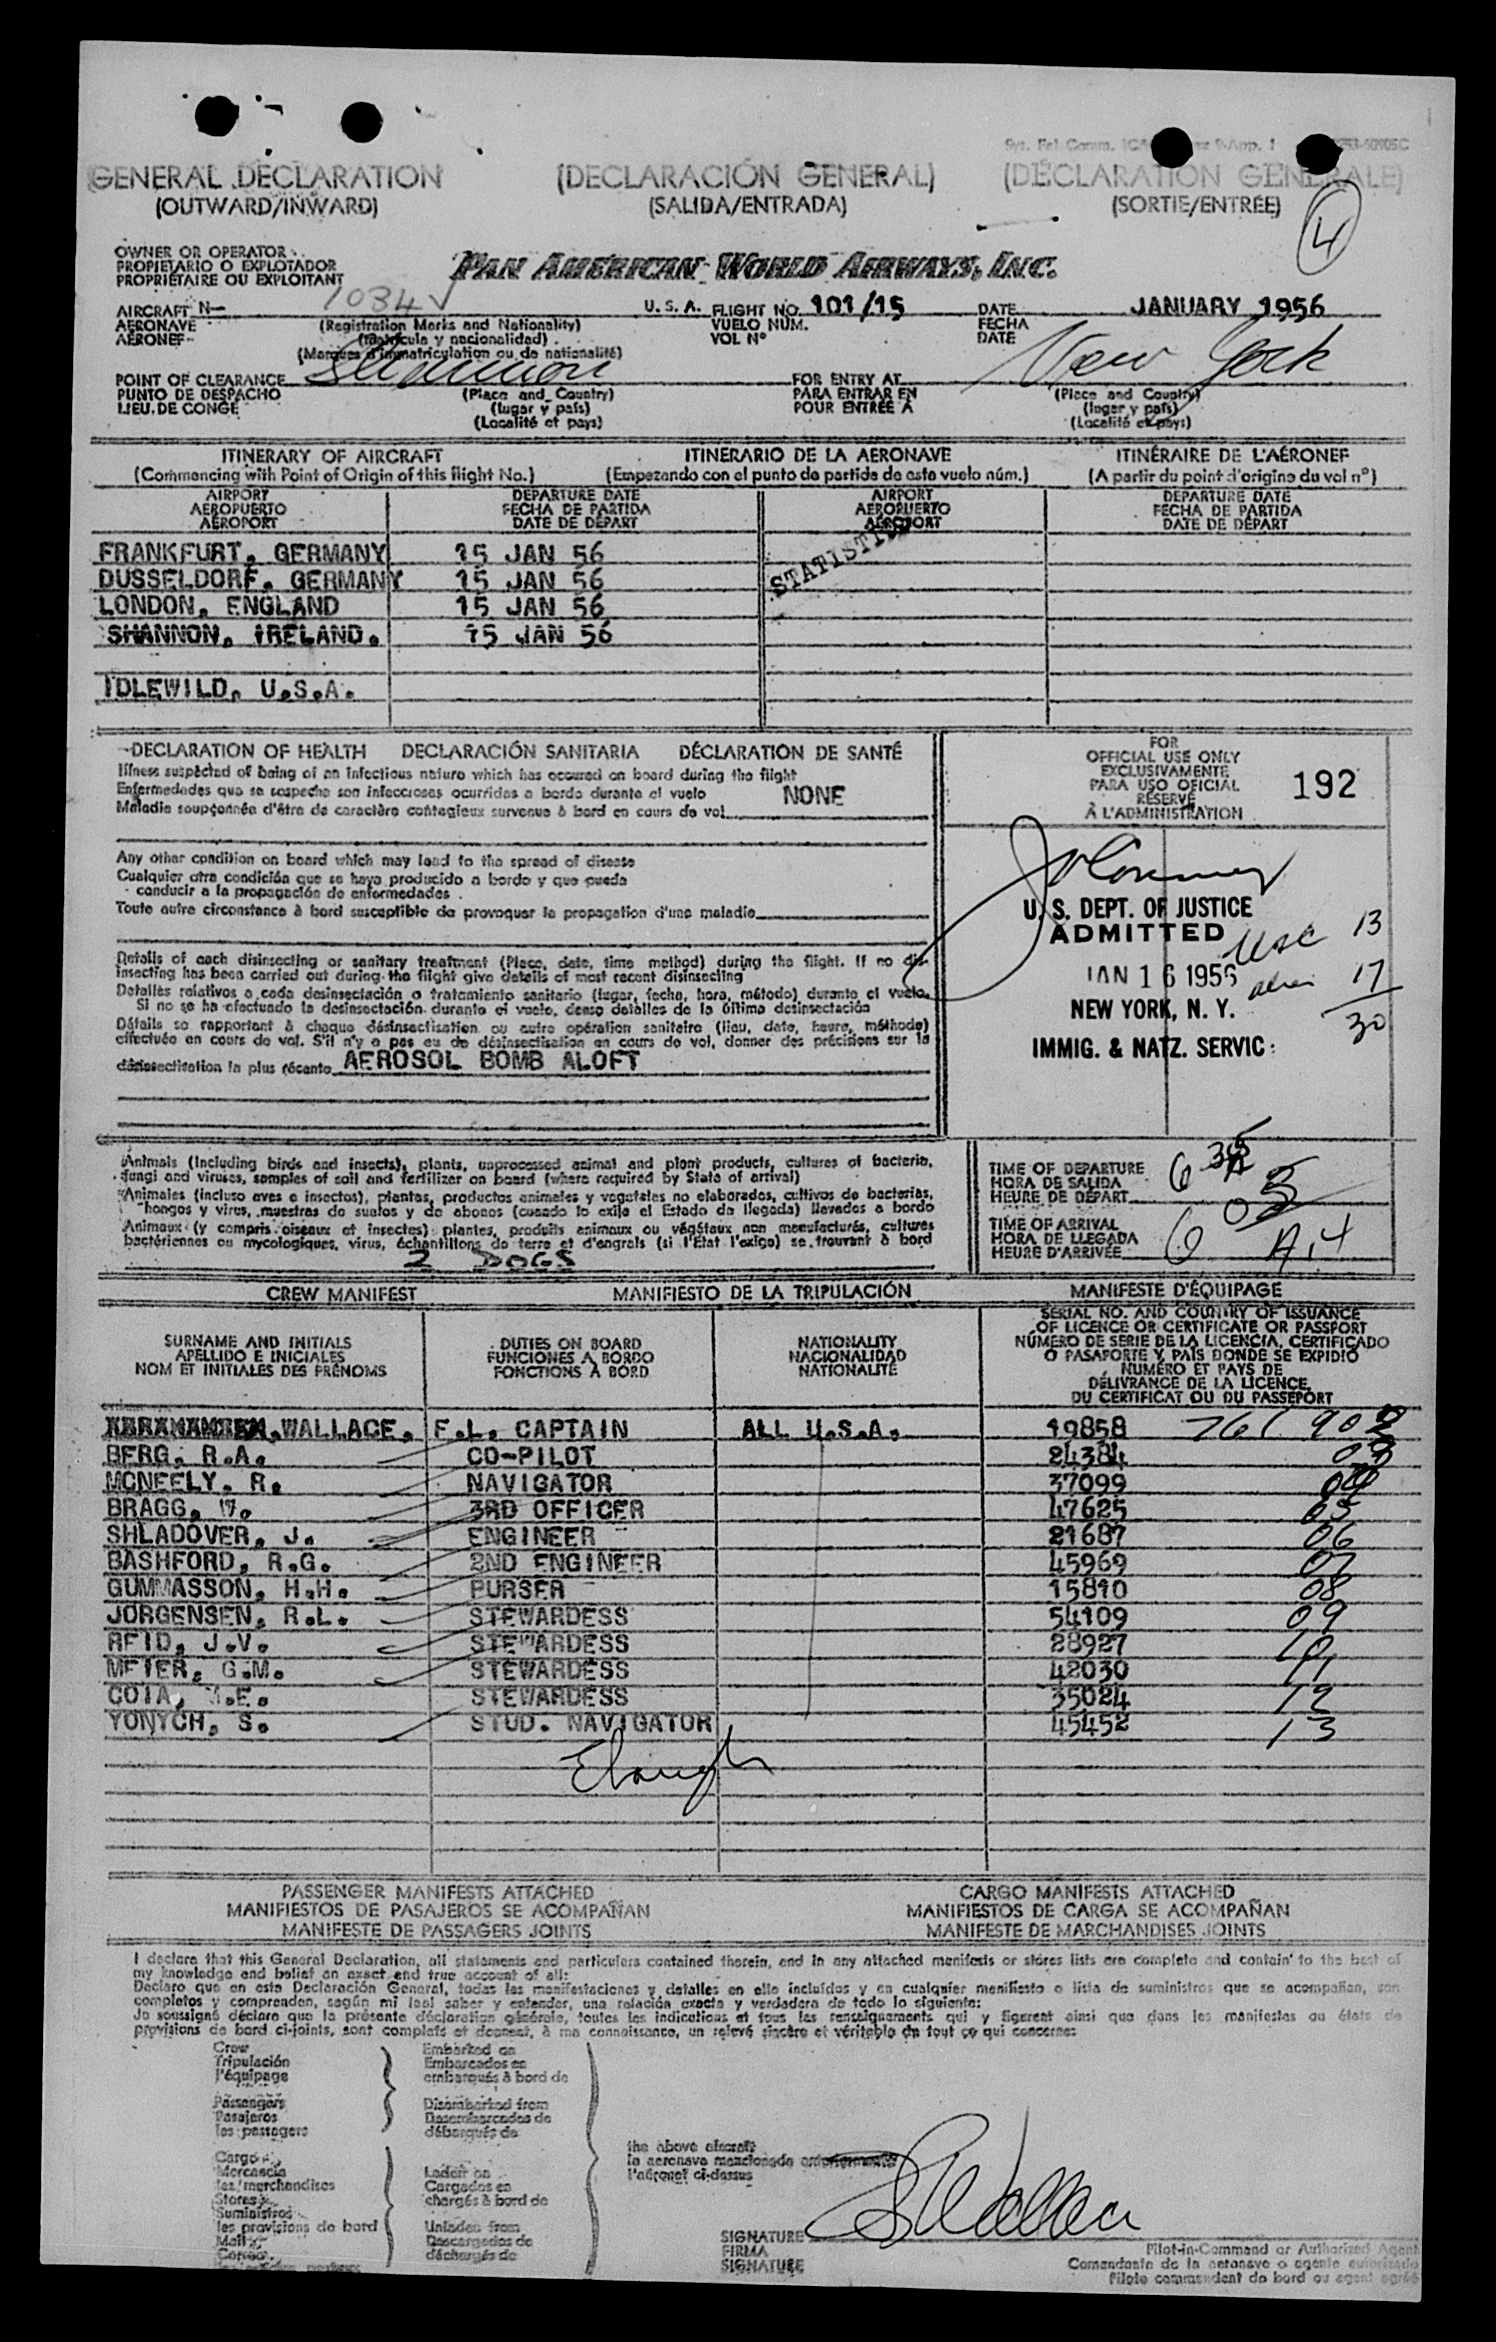 GENERAL DECLARATION (DECLARACIÓN GENERAL) (DÉCLARATION GENERALE)
(OUTWARD/INWARD) (SALIDA/ENTRADA) (SORTIE/ENTRÉE)
4
OWNER OR OPERATOR
PROPIETARIO O EXPLOTADOR
PROPRIÉTAIRE OU EXPLOITANT
PAN AMERICAN WORLD AIRWAYS, INC.
AIRCRAFT N- 1034 U.S.A. FLIGHT NO. 101/15 DATE JANUARY 1956
AERONAVE (Registration Marks and Nationality) VUELO NÚM. FECHA
AÉRONEF (Matrícula y nacionalidad) VOL Nº DATE
(Marques d'immatriculation ou de nationalité)
POINT OF CLEARANCE Shannon FOR ENTRY AT New York
PUNTO DE DESPACHO (Place and Country) PARA ENTRAR EN (Place and Country)
LIEU DE CONGÉ (lugar y país) POUR ENTRÉE À (lugar y país)
(Localité et pays) (Localité et pays)
ITINERARY OF AIRCRAFT ITINERARIO DE LA AERONAVE ITINÉRAIRE DE L'AÉRONEF
(Commencing with Point of Origin of this flight No.) (Empezando con el punto de partida de este vuelo núm.) (A partir du point d'origine du vol nº)
AIRPORT DEPARTURE DATE AIRPORT DEPARTURE DATE
AEROPUERTO FECHA DE PARTIDA AEROPUERTO FECHA DE PARTIDA
AÉROPORT DATE DE DÉPART AÉROPORT DATE DE DÉPART
FRANKFURT, GERMANY 15 JAN 56
DUSSELDORF, GERMANY 15 JAN 56
LONDON, ENGLAND 15 JAN 56
SHANNON, IRELAND. 15 JAN 56
IDLEWILD, U.S.A.
DECLARATION OF HEALTH DECLARACIÓN SANITARIA DÉCLARATION DE SANTÉ
Illness suspected of being of an infectious nature which has occurred on board during the flight
Enfermedades que se sospecha son infecciosas ocurridas a bordo durante el vuelo
Maladie soupçonnée d'être de caractère contagieux survenue à bord en cours de vol NONE
Any other condition on board which may lead to the spread of disease
Cualquier otra condición que se haya producido a bordo y que pueda
conducir a la propagación de enfermedades
Toute autre circonstance à bord susceptible de provoquer la propagation d'une maladie
Details of each disinsecting or sanitary treatment (Place, date, time method) during the flight. If no dis-
insecting has been carried out during the flight give details of most recent disinsecting
Detalles relativos a cada desinsectación o tratamiento sanitario (lugar, fecha, hora, método) durante el vuelo.
Si no se ha efectuado la desinsectación durante el vuelo, dense detalles de la última desinsectación
Détails se rapportant à chaque désinsectisation ou autre opération sanitaire (lieu, date, heure, méthode)
effectuée en cours de vol. S'il n'y a pas eu de désinsectisation en cours de vol, donner des précisions sur la
désinsectisation la plus récente AEROSOL BOMB ALOFT
FOR
OFFICIAL USE ONLY
EXCLUSIVAMENTE
PARA USO OFICIAL
RÉSERVÉ
À L'ADMINISTRATION
192
U. S. DEPT. OF JUSTICE
ADMITTED
USC 13
JAN 16 1956
alien 17
NEW YORK, N. Y.
30
IMMIG. & NATZ. SERVIC
Animals (Including birds and insects), plants, unprocessed animal and plant products, cultures of bacteria,
fungi and viruses, samples of soil and fertilizer on board (where required by State of arrival)
Animales (incluso aves e insectos), plantas, productos animales y vegetales no elaborados, cultivos de bacterias,
hongos y virus, muestras de suelos y de abonos (cuando lo exija el Estado de llegada) llevados a bordo
Animaux (y compris oiseaux et insectes) plantes, produits animaux ou végétaux non manufacturés, cultures
bactériennes ou mycologiques, virus, échantillons de terre et d'engrais (si l'État l'exige) se trouvant à bord
2 DOGS
TIME OF DEPARTURE
HORA DE SALIDA
HEURE DE DÉPART
TIME OF ARRIVAL
HORA DE LLEGADA
HEURE D'ARRIVÉE
CREW MANIFEST MANIFIESTO DE LA TRIPULACIÓN MANIFESTE D'ÉQUIPAGE
SURNAME AND INITIALS
APELLIDO E INICIALES
NOM ET INITIALES DES PRÉNOMS
DUTIES ON BOARD
FUNCIONES A BORDO
FONCTIONS À BORD
NATIONALITY
NACIONALIDAD
NATIONALITÉ
SERIAL NO. AND COUNTRY OF ISSUANCE
OF LICENCE OR CERTIFICATE OR PASSPORT
NÚMERO DE SERIE DE LA LICENCIA, CERTIFICADO
O PASAPORTE Y PAÍS DONDE SE EXPIDIÓ
NUMÉRO ET PAYS DE
DÉLIVRANCE DE LA LICENCE,
DU CERTIFICAT OU DU PASSEPORT
WALLACE, F.L. CAPTAIN ALL U.S.A. 19858 761 902
BERG, R.A. CO-PILOT 24384 03
MCNEELY, R. NAVIGATOR 37099 04
BRAGG, W. 3RD OFFICER 47625 05
SHLADOVER, J. ENGINEER 21687 06
BASHFORD, R.G. 2ND ENGINEER 45969 07
GUMMASSON, H.H. PURSER 15810 08
JORGENSEN, R.L. STEWARDESS 54109 09
REID, J.V. STEWARDESS 28927 10
MEIER, G.M. STEWARDESS 42030 11
COIA, M.E. STEWARDESS 35024 12
YONYCH, S. STUD. NAVIGATOR 45452 13
PASSENGER MANIFESTS ATTACHED CARGO MANIFESTS ATTACHED
MANIFIESTOS DE PASAJEROS SE ACOMPAÑAN MANIFIESTOS DE CARGA SE ACOMPAÑAN
MANIFESTE DE PASSAGERS JOINTS MANIFESTE DE MARCHANDISES JOINTS
I declare that this General Declaration, all statements and particulars contained therein, and in any attached manifests or stores lists are complete and contain to the best of
my knowledge and belief an exact and true account of all:
Declaro que en esta Declaración General, todas las manifestaciones y detalles en ella incluídos y en cualquier manifiesto o lista de suministros que se acompañan, son
completos y comprenden, según mi leal saber y entender, una relación exacta y verdadera de todo lo siguiente:
Je soussigné déclare que la présente déclaration générale, toutes les indications et tous les renseignements qui y figurent ainsi que dans les manifestes ou états de
provisions de bord ci-joints, sont complets et donnent, à ma connaissance, un relevé sincère et véritable de tout ce qui concerne:
Crew Embarked on
Tripulación Embarcados en
l'équipage embarqués à bord de
Passengers Disembarked from
Pasajeros Desembarcados de
les passagers débarqués de
the above aircraft
la aeronave mencionada
l'aéronef ci-dessus
Cargo
Mercancía Laden on
les marchandises Cargados en
Stores chargés à bord de
Suministros
les provisions de bord Unladen from
Mail Descargados de
Correo déchargés de
SIGNATURE
FIRMA
SIGNATURE
Pilot-in-Command or Authorized Agent
Comandante de la aeronave o agente autorizado
Pilote commandant de bord ou agent agréé